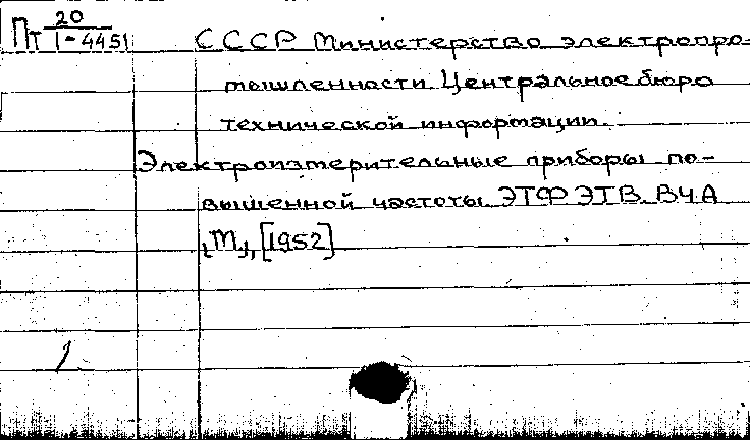 Пт 20
I-4451
СССР Министерство электропро-
мышленности. Центральное бюро
технической информации.
Электроизмерительные приборы по-
вышенной частоты ЭТФ ЭТВ. ВЧА
[М.], [1952]
1